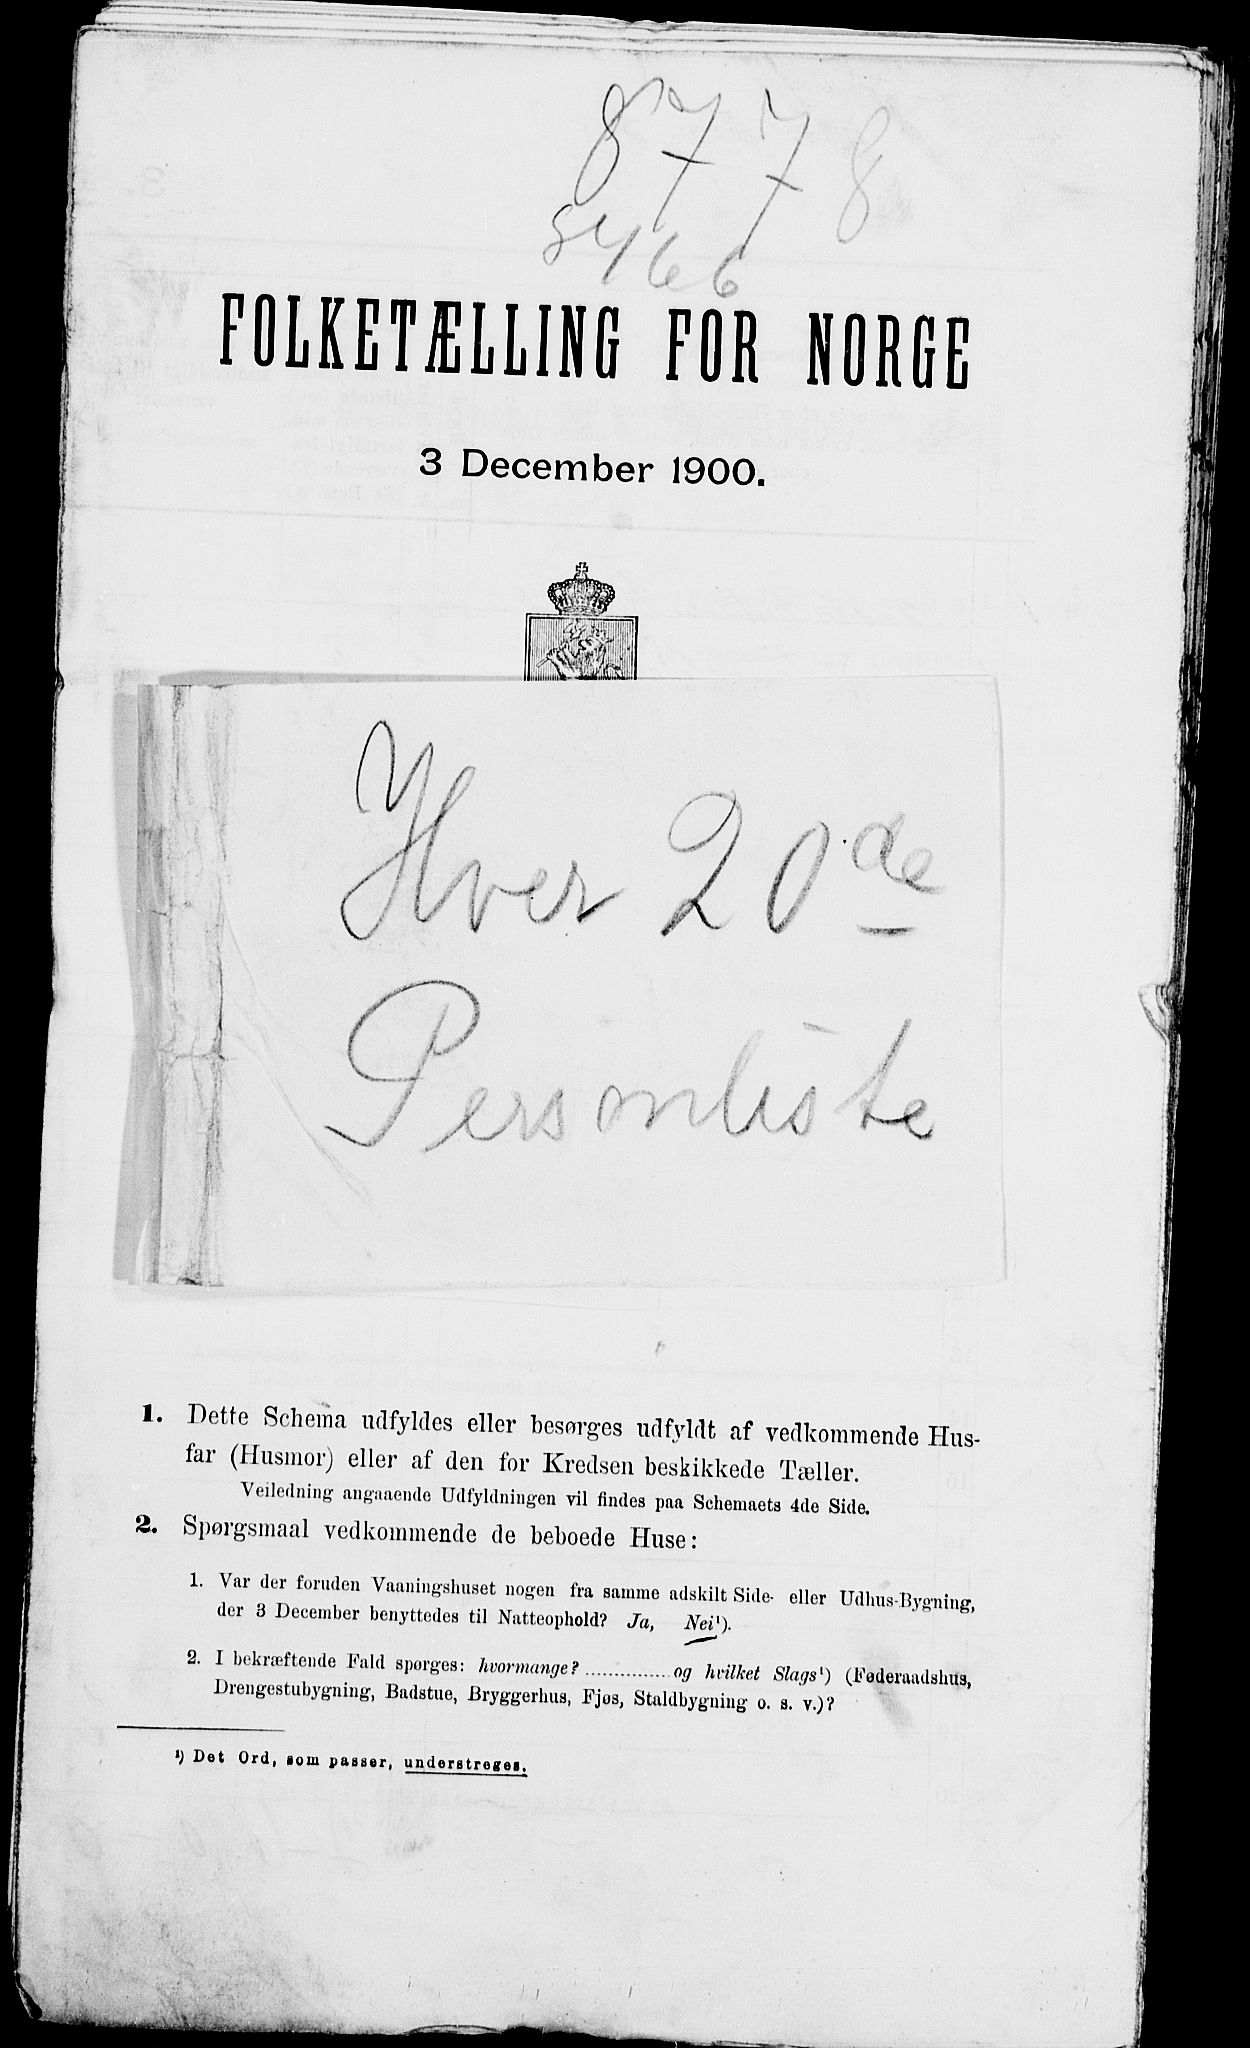 8778
8466
FOLKETÆLLING FOR NORGE
3 December 1900.
Hver 20de
Personliste
1. Dette Schema udfyldes eller besørges udfyldt af vedkommende Hus-
far (Husmor) eller af den for Kredsen beskikkede Tæller.
Veiledning angaaende Udfyldningen vil findes paa Schemaets 4de Side.
2. Spørgsmaal vedkommende de beboede Huse:
1. Var der foruden Vaaningshuset nogen fra samme adskilt Side- eller Udhus-Bygning,
der 3 December benyttedes til Natteophold? Ja, Nei¹).
2. I bekræftende Fald spørges: hvormange? ............... og hvilket Slags¹) (Føderaadshus,
Drengestubygning, Badstue, Bryggerhus, Fjøs, Staldbygning o. s. v.)?
¹) Det Ord, som passer, understreges.